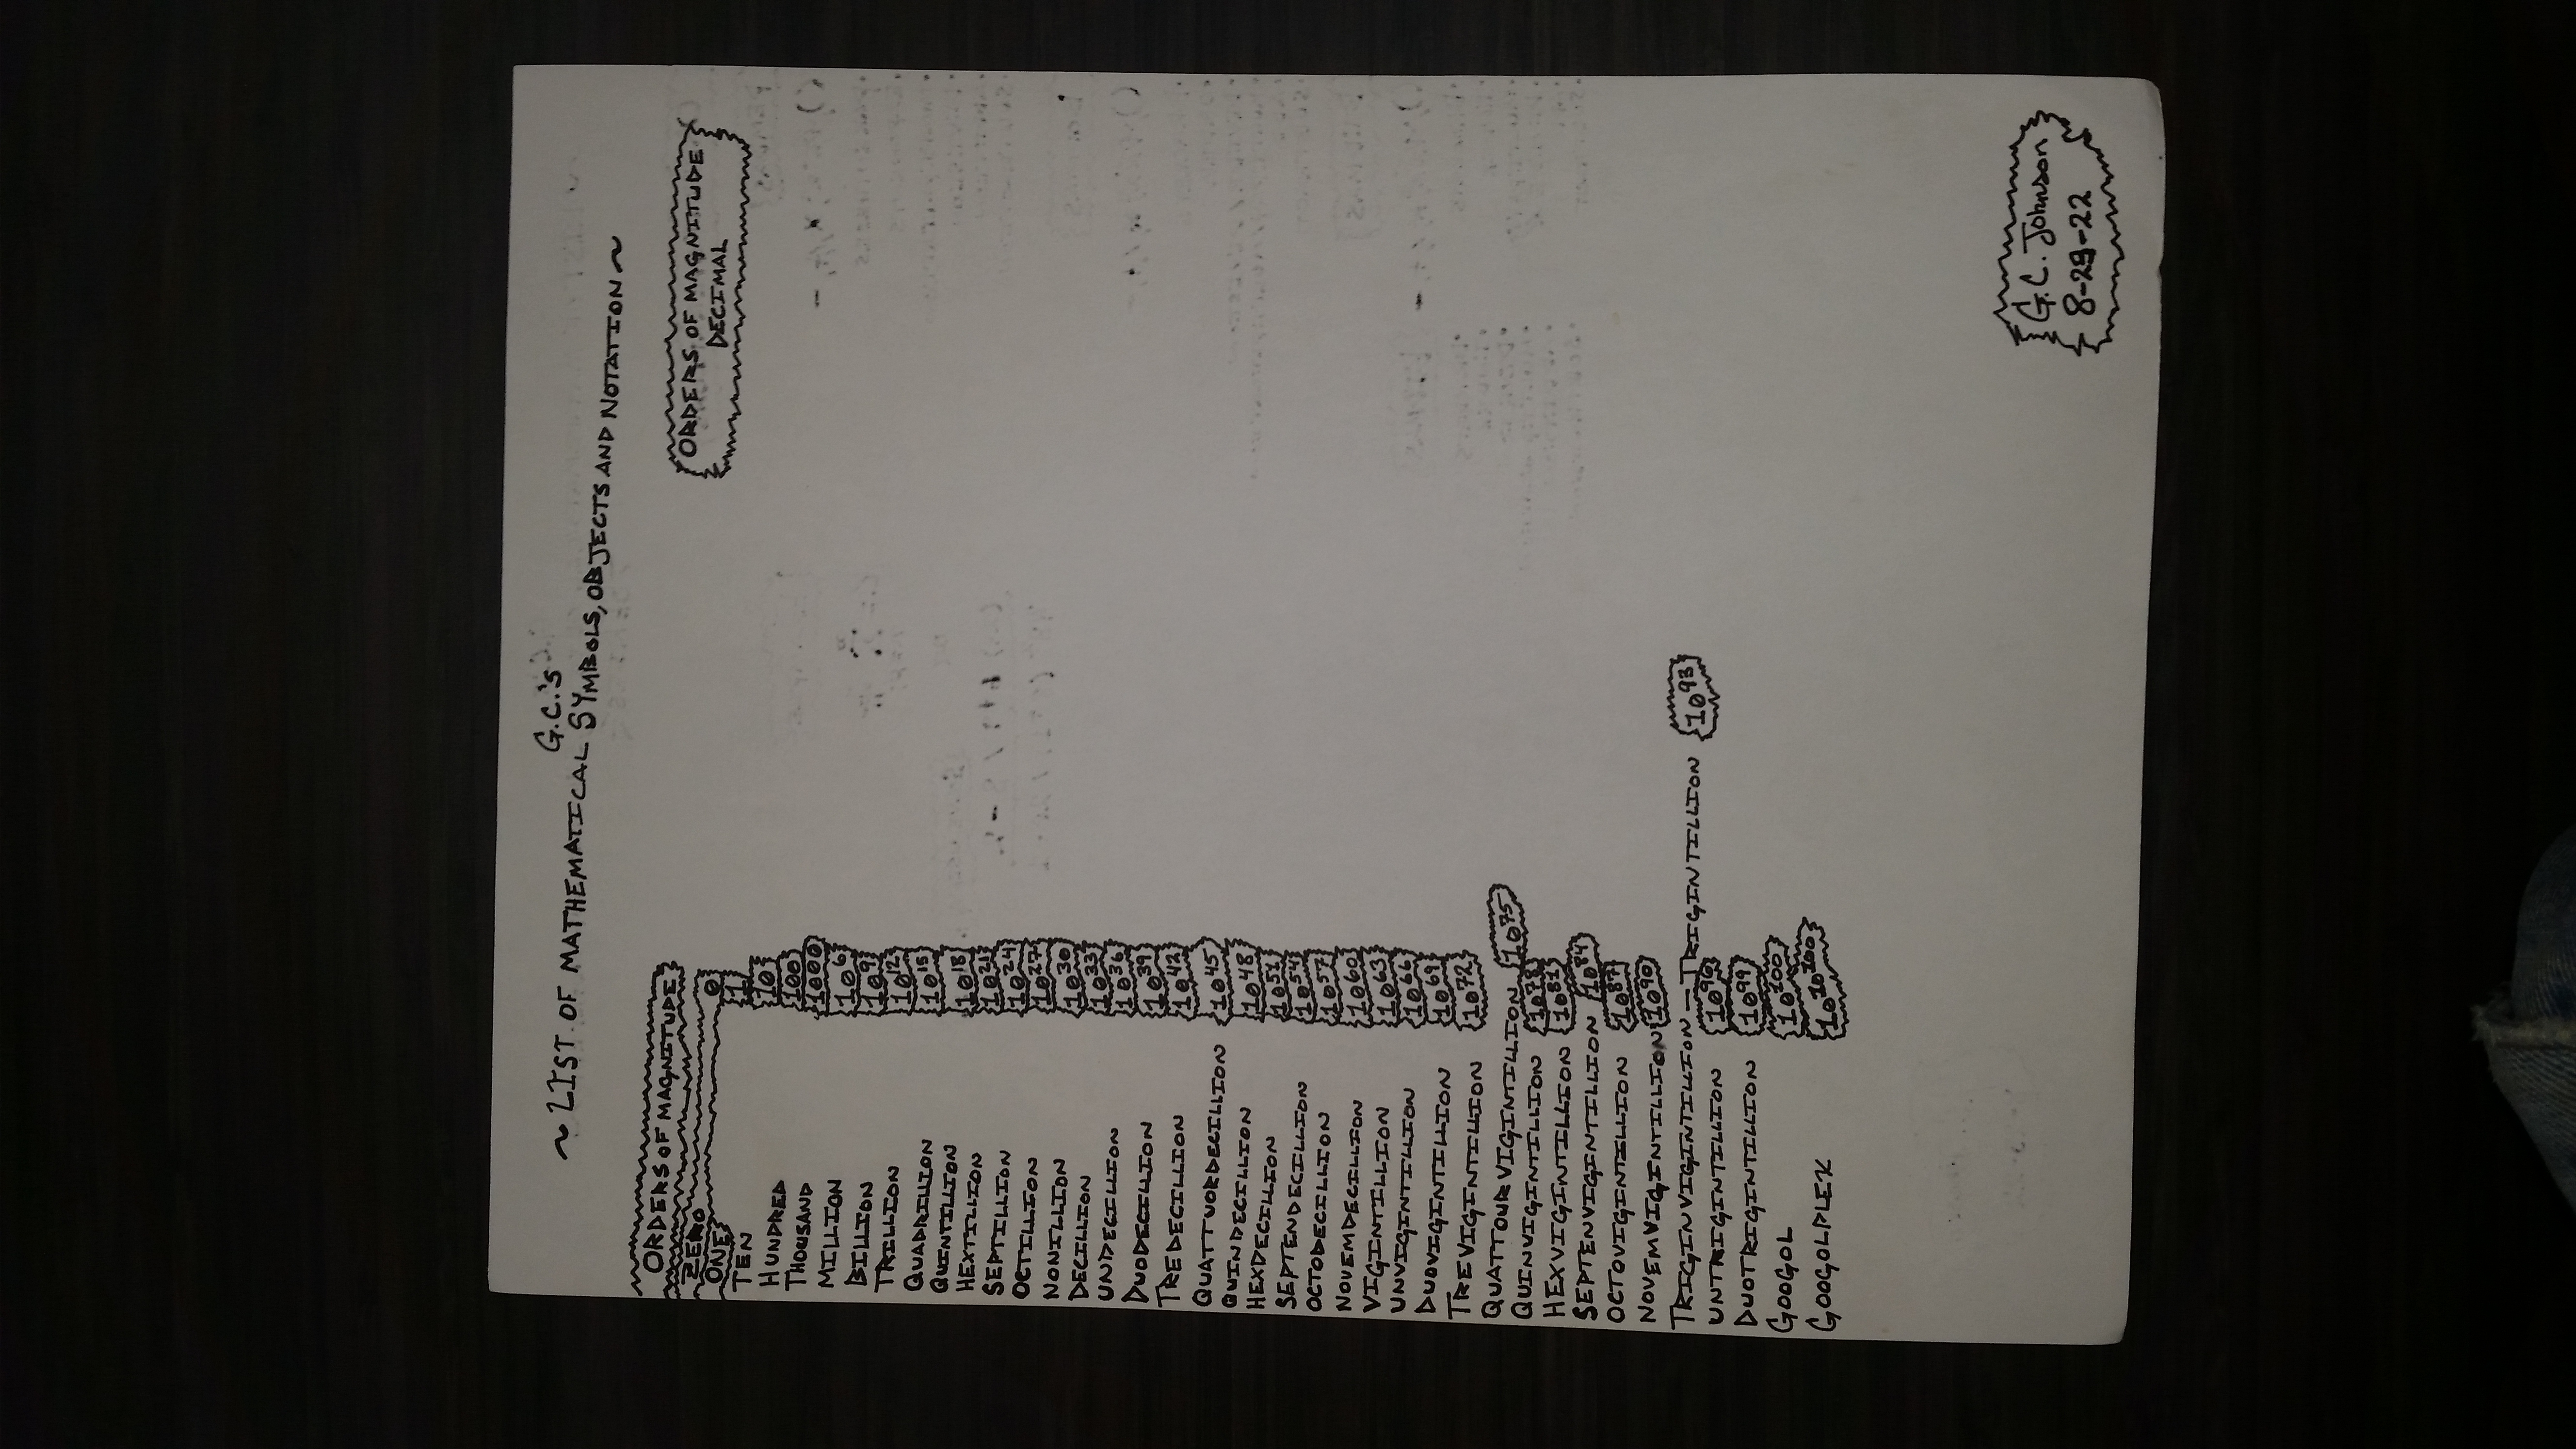 G.C.'s
~ LIST OF MATHEMATICAL SYMBOLS, OBJECTS AND NOTATION ~
ORDERS OF MAGNITUDE
ORDERS OF MAGNITUDE
DECIMAL
ZERO 0
ONE 1
TEN 10
HUNDRED 100
THOUSAND 1000
MILLION 10⁶
BILLION 10⁹
TRILLION 10¹²
QUADRILLION 10¹⁵
QUINTILLION 10¹⁸
HEXTILLION 10²¹
SEPTILLION 10²⁴
OCTILLION 10²⁷
NONILLION 10³⁰
DECILLION 10³³
UNDECILLION 10³⁶
DUODECILLION 10³⁹
TREDECILLION 10⁴²
QUATTUORDECILLION 10⁴⁵
QUINDECILLION 10⁴⁸
HEXDECILLION 10⁵¹
SEPTENDECILLION 10⁵⁴
OCTODECILLION 10⁵⁷
NOVEMDECILLION 10⁶⁰
VIGINTILLION 10⁶³
UNVIGINTILLION 10⁶⁶
DUOVIGINTILLION 10⁶⁹
TREVIGINTILLION 10⁷²
QUATTOURVIGINTILLION 10⁷⁵
QUINVIGINTILLION 10⁷⁸
HEXVIGINTILLION 10⁸¹
SEPTENVIGINTILLION 10⁸⁴
OCTOVIGINTILLION 10⁸⁷
NOVEMVIGINTILLION 10⁹⁰
TRIGINVIGINTILLION – TRIGINTILLION 10⁹³
UNTRIGINTILLION 10⁹⁶
DUOTRIGINTILLION 10⁹⁹
GOOGOL 10¹⁰⁰
GOOGOLPLEX 10^10^100
G.C. Johnson
8-29-22